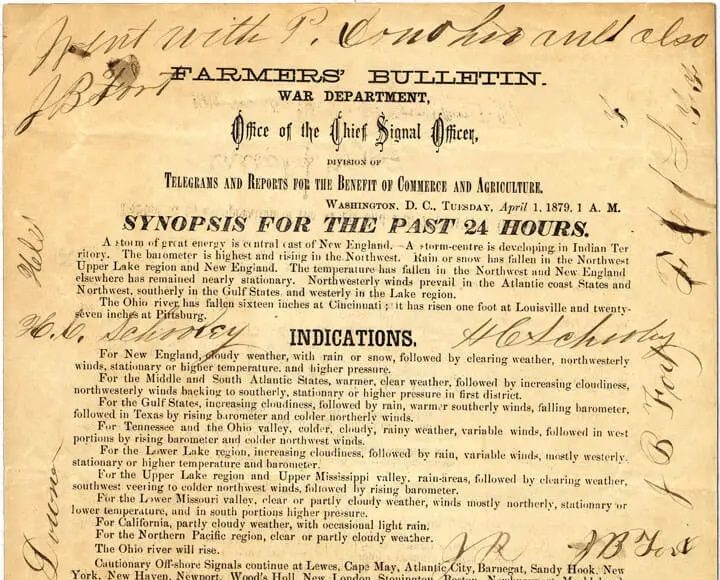 Went with P. Donoher and also
J B Fort
FARMERS' BULLETIN.
WAR DEPARTMENT,
Office of the Chief Signal Officer,
DIVISION OF
TELEGRAMS AND REPORTS FOR THE BENEFIT OF COMMERCE AND AGRICULTURE.
WASHINGTON, D. C., TUESDAY, April 1, 1879, 1 A. M.
SYNOPSIS FOR THE PAST 24 HOURS.
A storm of great energy is central east of New England. A storm-centre is developing in Indian Ter
ritory. The barometer is highest and rising in the Northwest. Rain or snow has fallen in the Northwest
Upper Lake region and New England. The temperature has fallen in the Northwest and New England
elsewhere has remained nearly stationary. Northwesterly winds prevail in the Atlantic coast States and
Northwest, southerly in the Gulf States, and westerly in the Lake region.
The Ohio river has fallen sixteen inches at Cincinnati; it has risen one foot at Louisville and twenty-
seven inches at Pittsburg.
H. C. Schooley
H C Schooley
INDICATIONS.
For New England, cloudy weather, with rain or snow, followed by clearing weather, northwesterly
winds, stationary or higher temperature, and higher pressure.
For the Middle and South Atlantic States, warmer, clear weather, followed by increasing cloudiness,
northwesterly winds backing to southerly, stationary or higher pressure in first district.
For the Gulf States, increasing cloudiness, followed by rain, warmer southerly winds, falling barometer,
followed in Texas by rising barometer and colder northerly winds.
For Tennessee and the Ohio valley, colder, cloudy, rainy weather, variable winds, followed in west
portions by rising barometer and colder northwest winds.
For the Lower Lake region, increasing cloudiness, followed by rain, variable winds, mostly westerly,
stationary or higher temperature and barometer.
For the Upper Lake region and Upper Mississippi valley, rain-areas, followed by clearing weather,
southwest veering to colder northwest winds, followed by rising barometer.
For the Lower Missouri valley, clear or partly cloudy weather, winds mostly northerly, stationary or
lower temperature, and in south portions higher pressure.
For California, partly cloudy weather, with occasional light rain.
For the Northern Pacific region, clear or partly cloudy weather.
The Ohio river will rise.
J B
J B Fort
Cautionary Off-shore Signals continue at Lewes, Cape May, Atlantic City, Barnegat, Sandy Hook, New
York, New Haven, Newport, Wood's Holl, New London, Stonington, Boston,
J B Fort